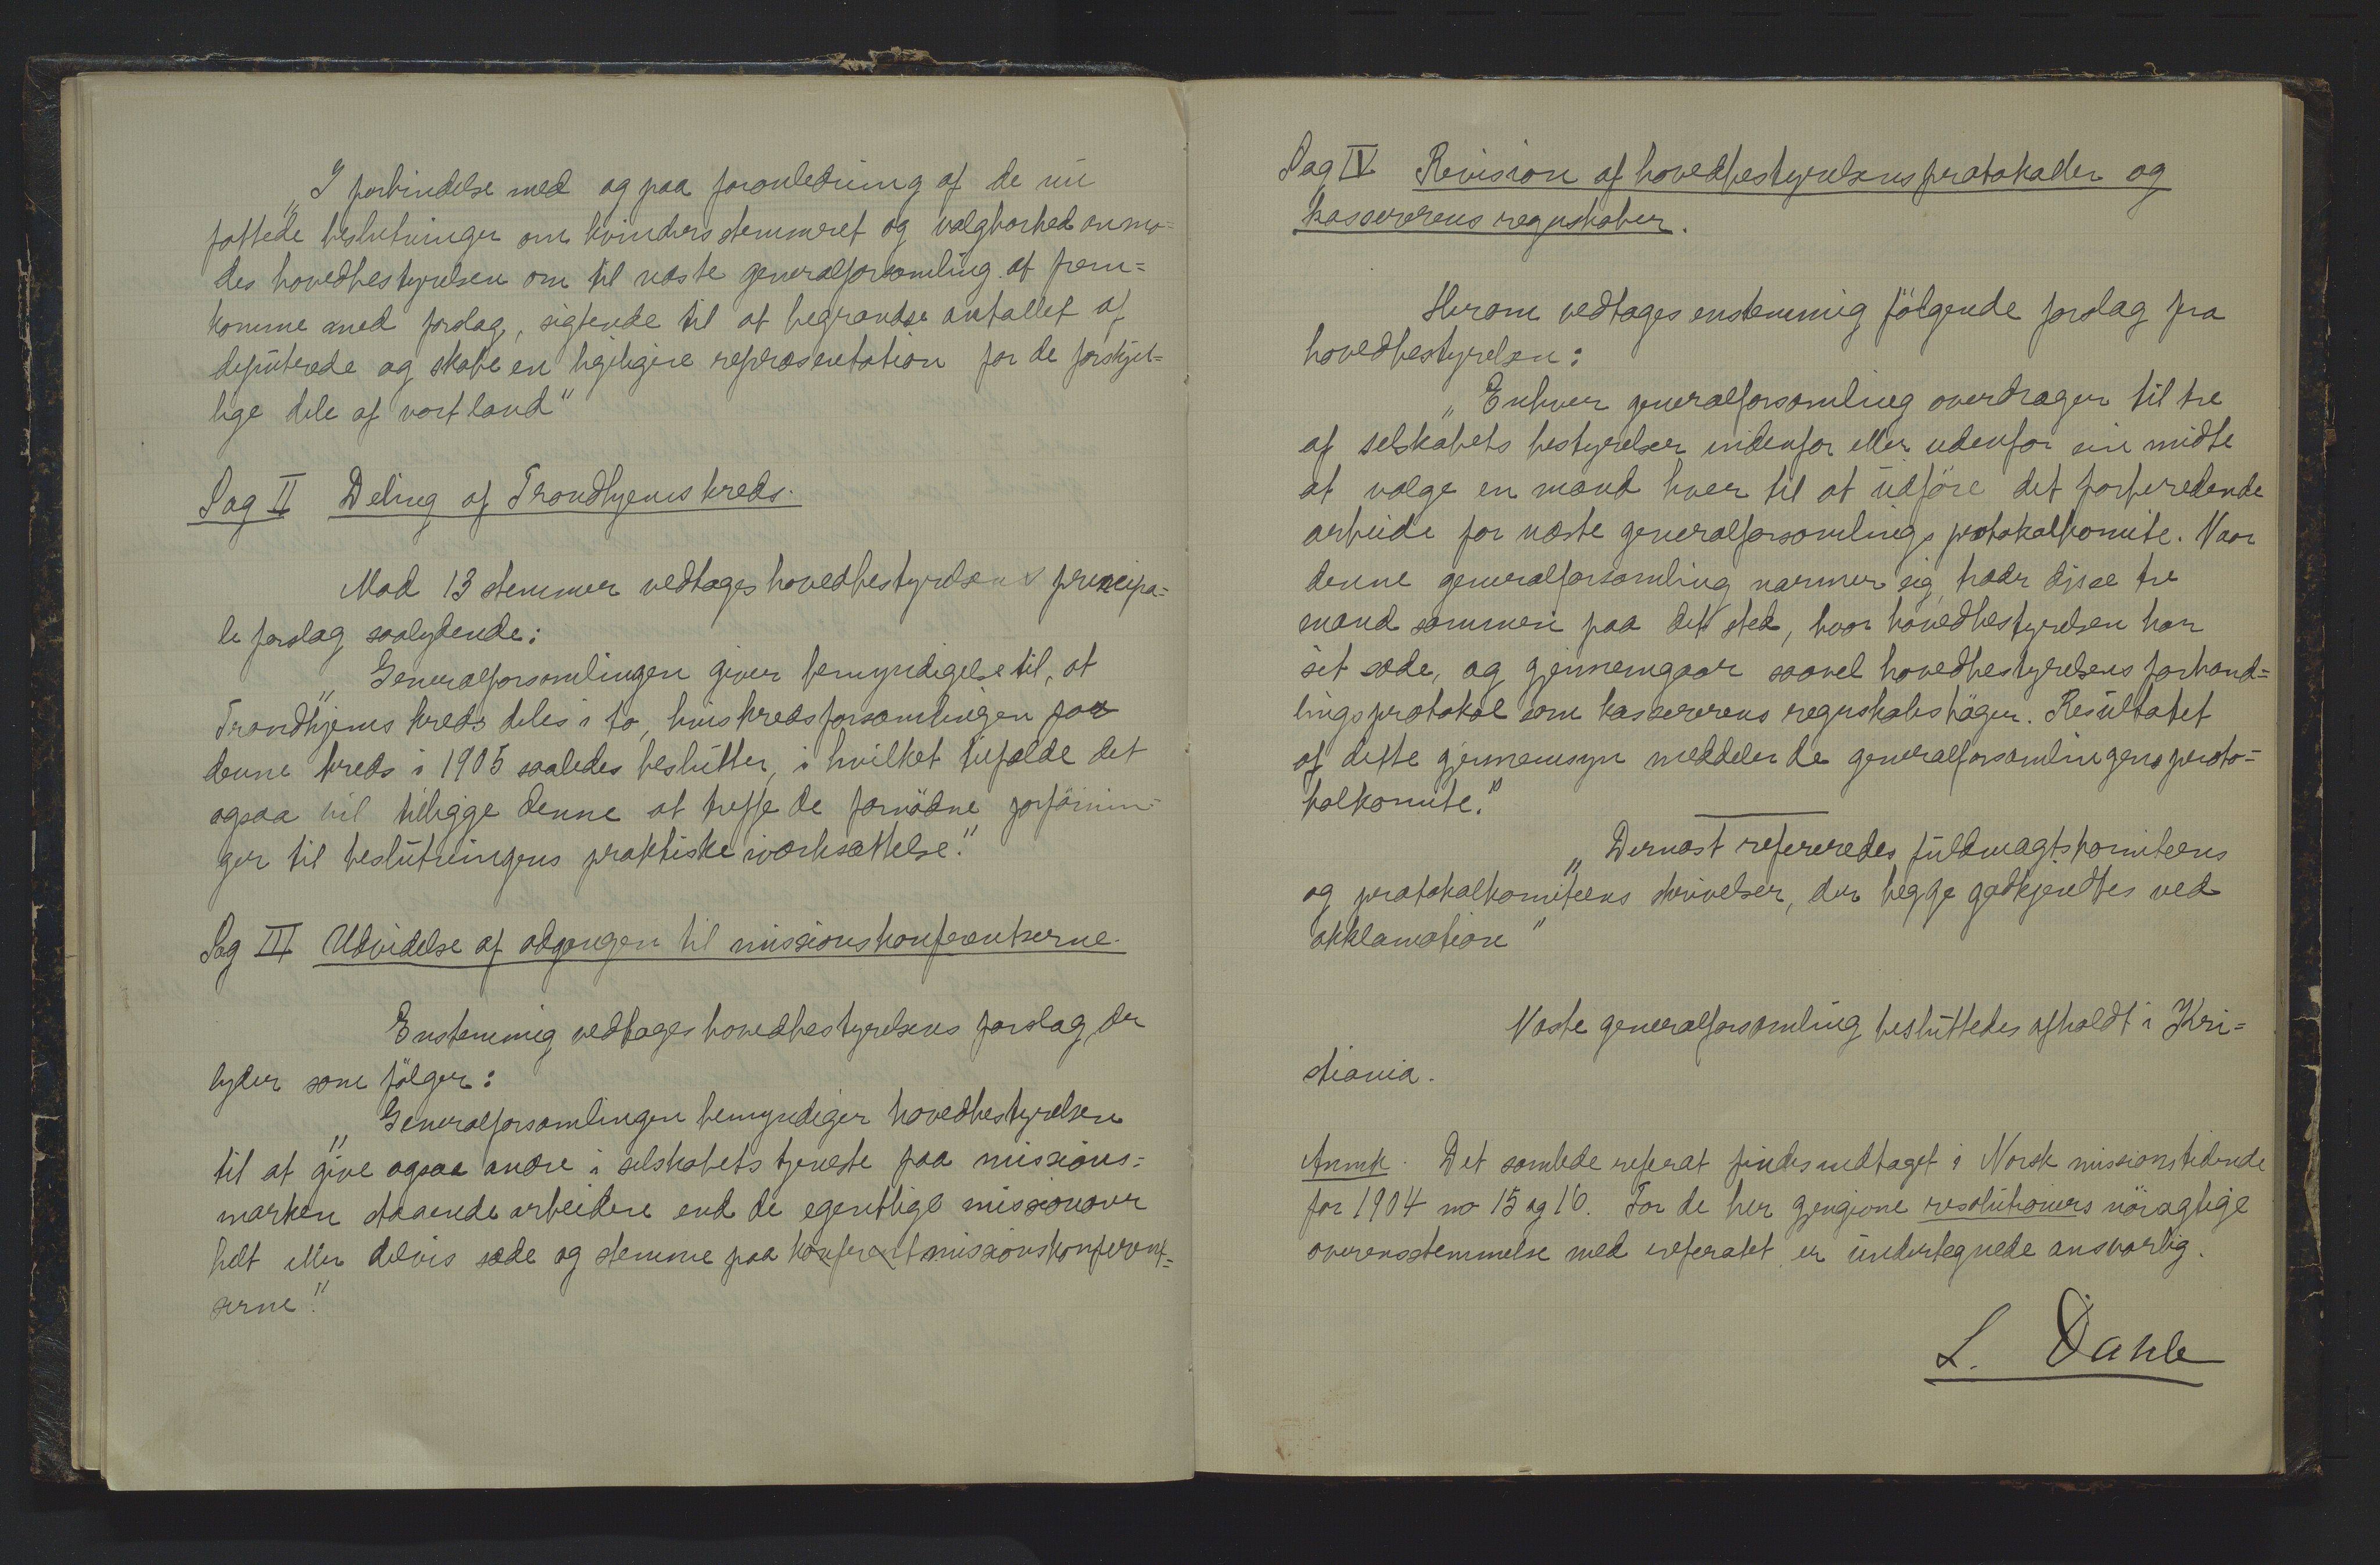 „I forbindelse med og paa foranledning af de nu
fattede beslutninger om kvinders stemmeret og valgbarhed anmo=
des hovedbestyrelsen om til næste generalforsamling at frem=
komme med forslag, sigtende til at begrændse antallet af
deputerede og skabe en ligeligere repræsentation for de forskjel=
lige dele af vort land"
Sag II Deling af Trondhjems kreds.
Mod 13 stemmer vedtages hovedbestyrelsens principa=
le forslag saalydende:
„Generalforsamlingen giver bemyndigelse til, at
Trondhjems kreds deles i to, hvis kredsforsamlingen for
denne kreds i 1905 saaledes beslutter, i hvilket tilfælde det
ogsaa vil tilligge denne at treffe de fornødne forføinin=
ger til beslutningens praktiske iværksættelse."
Sag III Udvidelse af adgangen til missionskonferentserne.
Enstemmig vedtages hovedbestyrelsens forslag, der
lyder som følger:
„Generalforsamlingen bemyndiger hovedbestyrelsen
til at give ogsaa andre i selskabets tjeneste paa missions=
marken staaende arbeidere end de egentlige missionærer
helt eller delvis sæde og stemme paa konferent missionskonferent=
serne."
Sag IV Revision af hovedbestyrelsens protokoller og
kassererens regnskaber.
Herom vedtages enstemmig følgende forslag fra
hovedbestyrelsen:
„Enhver generalforsamling overdrager til tre
af selskabets bestyrelser indenfor eller udenfor sin midte
at vælge en mand hver til at udføre det forberedende
arbeide for næste generalforsamlings protokolkomite. Naar
denne generalforsamling nærmer sig, træder disse tre
mænd sammen paa det sted, hvor hovedbestyrelsen har
sit sæde, og gjennemgaar saavel hovedbestyrelsens forhand=
lingsprotokol som kassererens regnskabsbøger. Resultatet
af dette gjennemsyn meddeler de generalforsamlingens proto=
kolkomite."
„Dernæst refereredes fuldmagtskomiteens
og protokolkomiteens skrivelser, der begge godkjendtes ved
akklamation"
Næste generalforsamling besluttedes afholdt i Kri=
stiania.
Anmk. Det samlede referat findes indtaget i Norsk missionstidende
for 1904 no 15 og 16. For de her gjengivne resolutioners nøiagtige
overensstemmelse med referatet er undertegnede ansvarlig.
L. Dahle